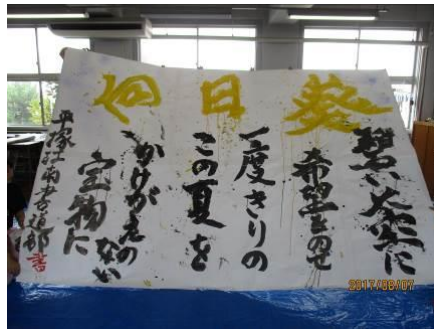 向日葵
碧い大空に
希望をのせ
一度きりの
この夏を
かけがえのない
宝物に
平塚江南書道部
2017/08/07